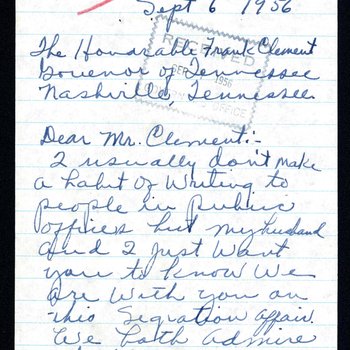 Sept 6 1956
The Honorable Frank Clement
Govenor of Tennessee
Nashville, Tennessee
RECEIVED
1956
OFFICE
Dear Mr. Clement:-
I usually don't make
a habit of writing to
people in public
offices but my husband
and I just want
you to know we
are with you on
this Segration affair.
We both admire